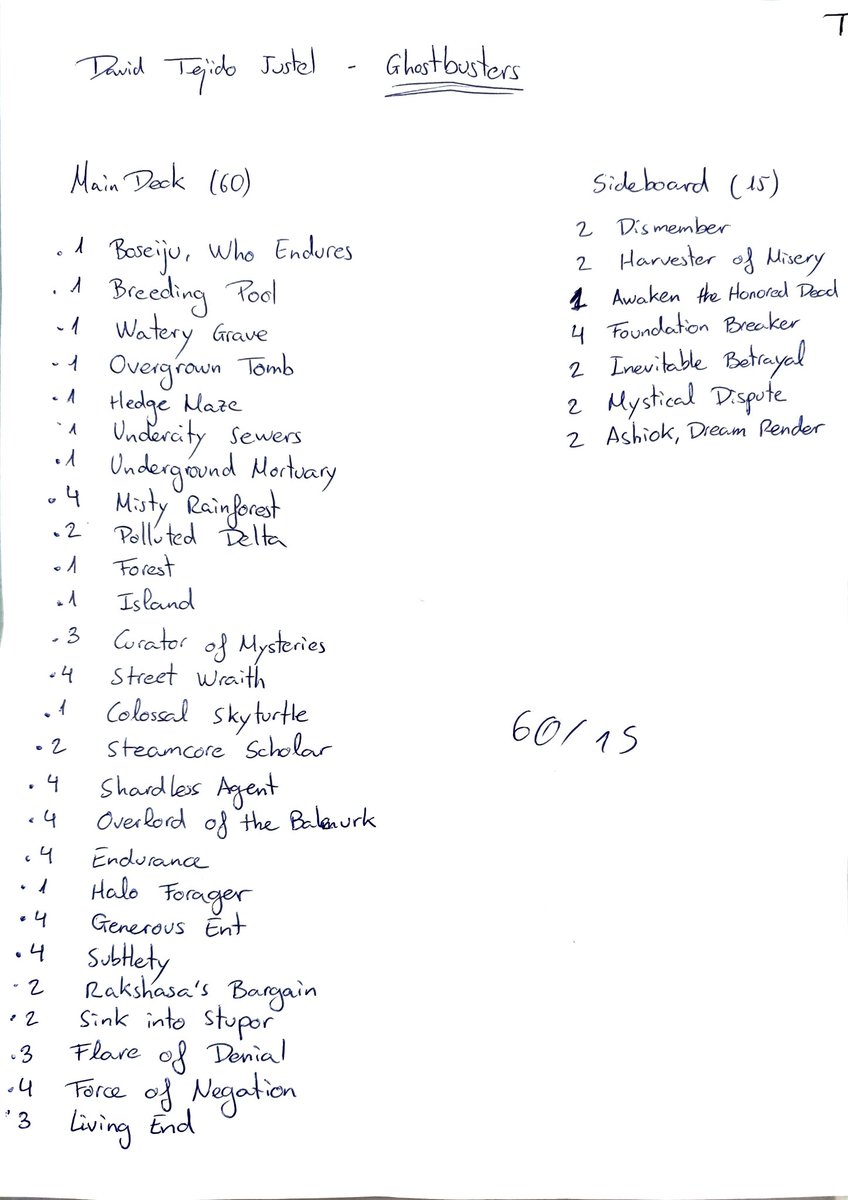 T
David Tejido Justel - Ghostbusters
Main Deck (60)
. 1 Boseiju, Who Endures
. 1 Breeding Pool
- 1 Watery Grave
- 1 Overgrown Tomb
. 1 Hedge Maze
. 1 Undercity Sewers
. 1 Underground Mortuary
. 4 Misty Rainforest
. 2 Polluted Delta
. 1 Forest
. 1 Island
. 3 Curator of Mysteries
. 4 Street Wraith
. 1 Colossal Skyturtle
. 2 Steamcore Scholar
. 4 Shardless Agent
. 4 Overlord of the Balemurk
. 4 Endurance
. 1 Halo Forager
. 4 Generous Ent
. 4 Subtlety
. 2 Rakshasa's Bargain
. 2 Sink into Stupor
. 3 Flare of Denial
. 4 Force of Negation
. 3 Living End
Sideboard (15)
2 Dismember
2 Harvester of Misery
1 Awaken the Honored Dead
4 Foundation Breaker
2 Inevitable Betrayal
2 Mystical Dispute
2 Ashiok, Dream Render
60/15